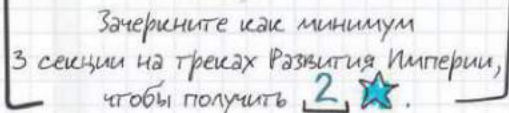 Зачеркните как минимум
3 секции на треках Развития Империи,
чтобы получить 2 .